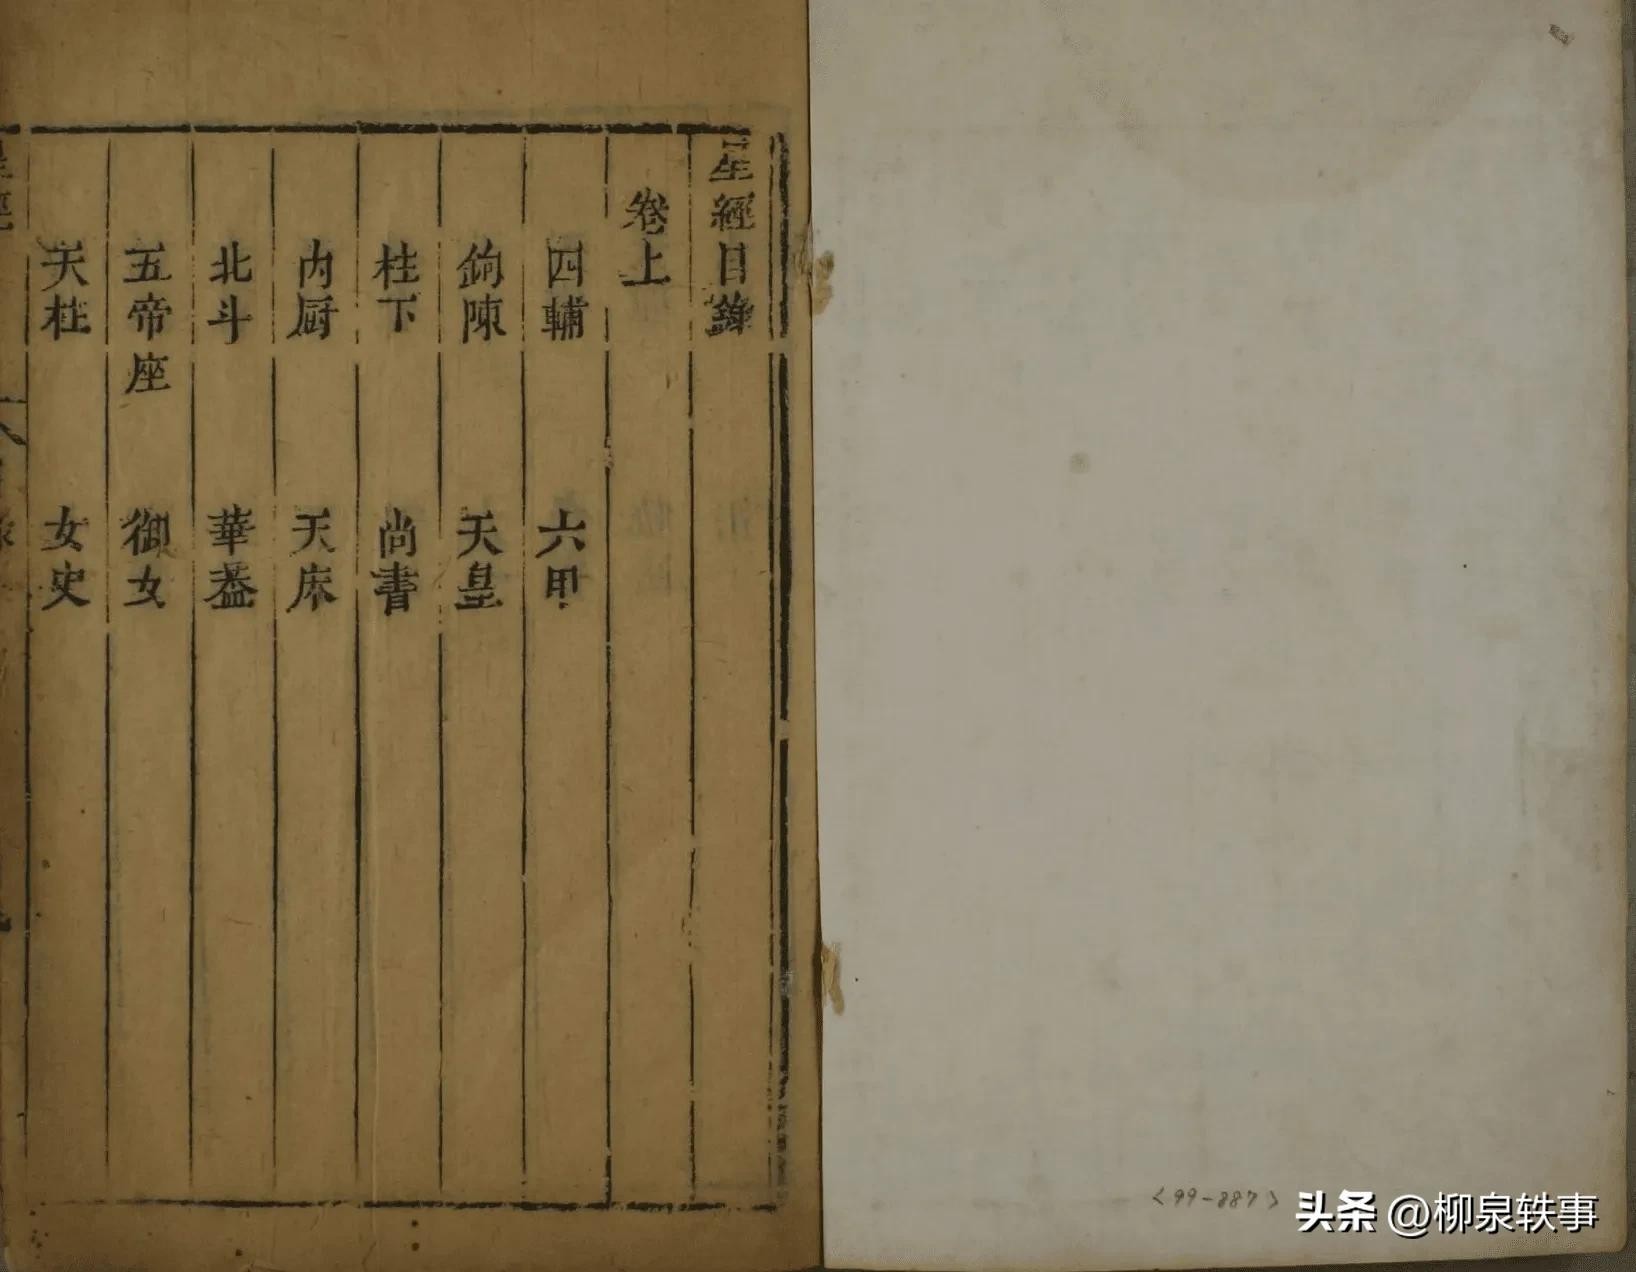 星經目錄
卷上
四輔 六甲
鉤陳 天皇
柱下 尚書
内厨 天床
北斗 華蓋
五帝座 御女
天柱 女史
<99-887>
头条 @柳泉轶事